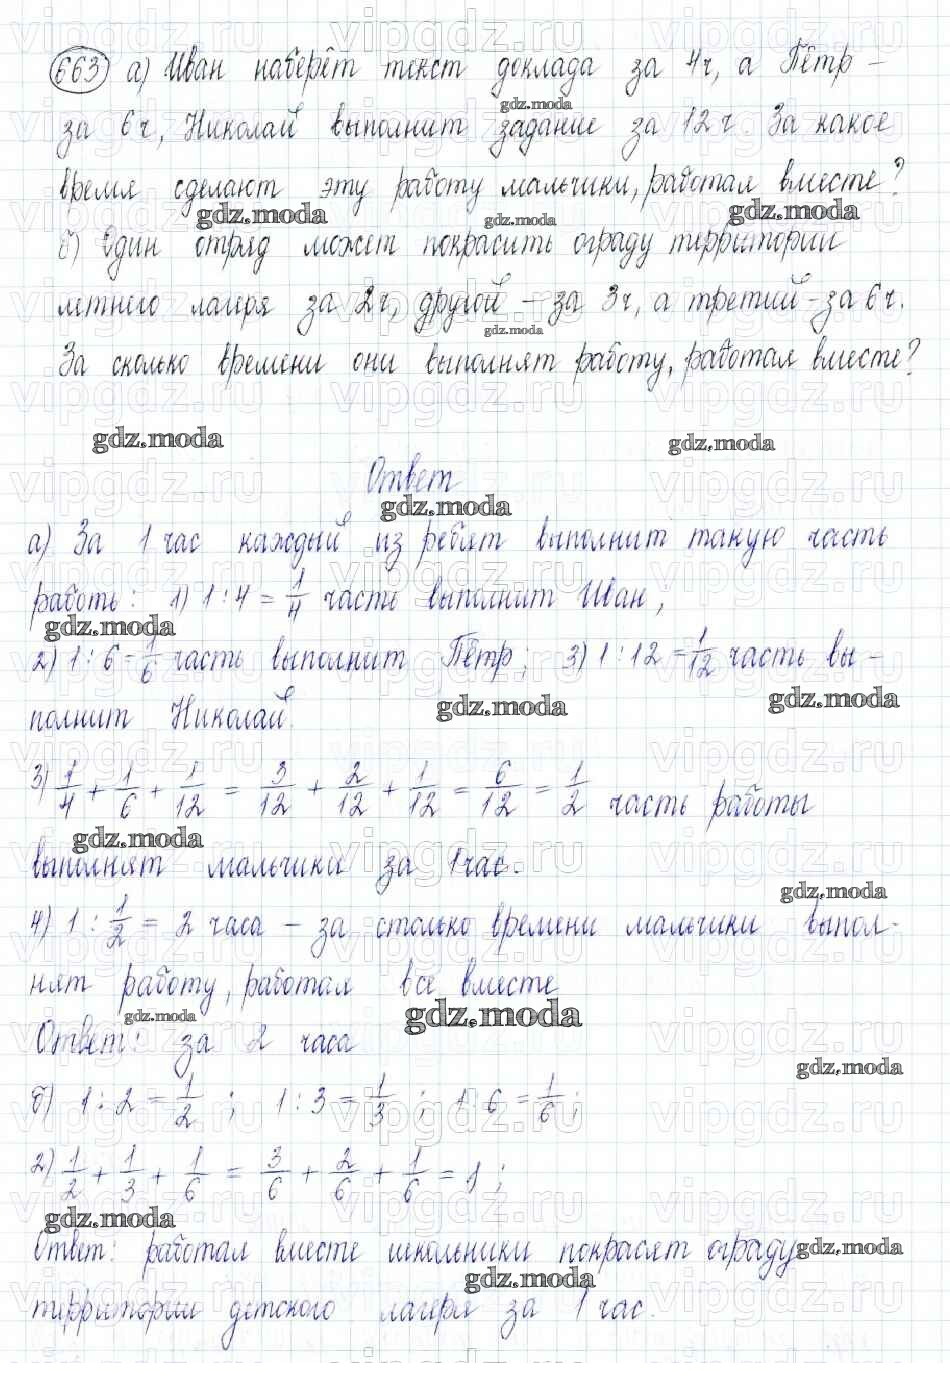 663 а) Иван наберёт текст доклада за 4ч, а Пётр –
за 6ч, Николай выполнит задание за 12ч. За какое
время сделают эту работу мальчики, работая вместе?
б) Один отряд может покрасить ограду территории
летнего лагеря за 2ч, другой – за 3ч, а третий – за 6ч.
За сколько времени они выполнят работу, работая вместе?
Ответ
а) За 1 час каждый из ребят выполнит такую часть
работы: 1) 1 : 4 = 1/4 часть выполнит Иван,
2) 1 : 6 = 1/6 часть выполнит Пётр; 3) 1 : 12 = 1/12 часть вы-
полнит Николай.
3) 1/4 + 1/6 + 1/12 = 3/12 + 2/12 + 1/12 = 6/12 = 1/2 часть работы
выполнят мальчики за 1 час.
4) 1 : 1/2 = 2 часа – за столько времени мальчики выпол-
нят работу, работая все вместе
Ответ: за 2 часа
б) 1 : 2 = 1/2 ; 1 : 3 = 1/3 ; 1 : 6 = 1/6 ;
2) 1/2 + 1/3 + 1/6 = 3/6 + 2/6 + 1/6 = 1 ;
Ответ: работая вместе школьники покрасят ограду
территории детского лагеря за 1 час.
gdz.moda
vipgdz.ru